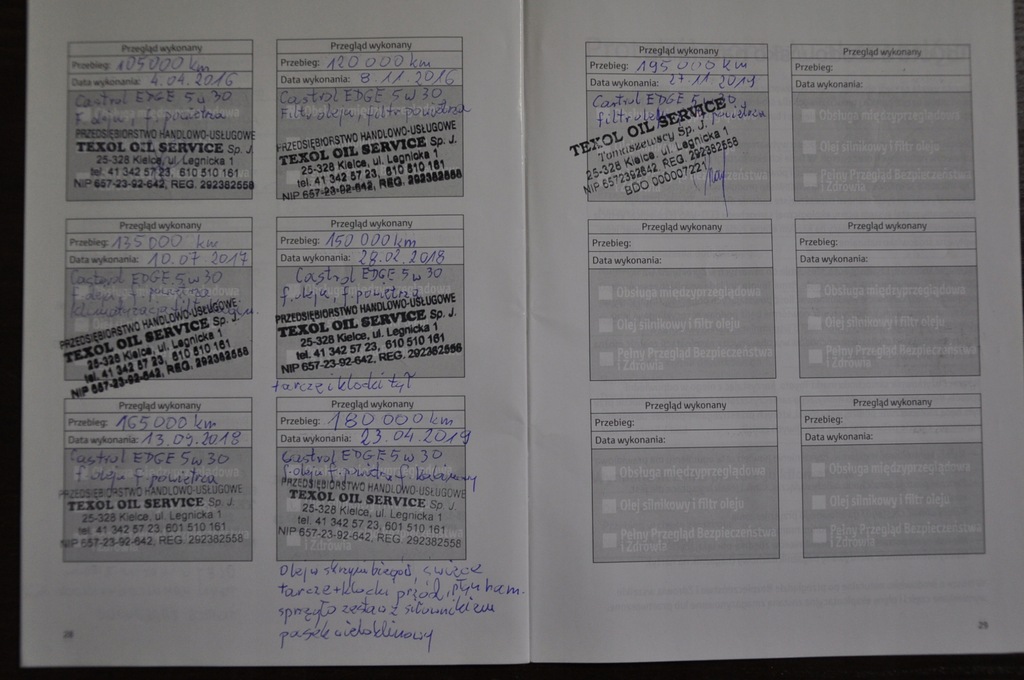 Przegląd wykonany
Przebieg: 105000 km
Data wykonania: 4.04.2016
Castrol EDGE 5w30
F. oleju, f. powietrza
PRZEDSIĘBIORSTWO HANDLOWO-USŁUGOWE
TEXOL OIL SERVICE Sp. J.
25-328 Kielce, ul. Legnicka 1
tel. 41 342 57 23, 610 510 161
NIP 657-23-92-642, REG. 292382558
Przegląd wykonany
Przebieg: 120 000 km
Data wykonania: 8.11.2016
Castrol EDGE 5w30
Filtr oleju, filtr powietrza
PRZEDSIĘBIORSTWO HANDLOWO-USŁUGOWE
TEXOL OIL SERVICE Sp. J.
25-328 Kielce, ul. Legnicka 1
tel. 41 342 57 23, 610 510 161
NIP 657-23-92-642, REG. 292382558
Przegląd wykonany
Przebieg: 135000 km
Data wykonania: 10.07.2017
Castrol EDGE 5w30
f. oleju, f. powietrza
PRZEDSIĘBIORSTWO HANDLOWO-USŁUGOWE
TEXOL OIL SERVICE Sp. J.
25-328 Kielce, ul. Legnicka 1
tel. 41 342 57 23, 610 510 161
NIP 657-23-92-642, REG. 292382558
Przegląd wykonany
Przebieg: 150 000 km
Data wykonania: 28.02.2018
Castrol EDGE 5w30
f. oleju, f. powietrza
PRZEDSIĘBIORSTWO HANDLOWO-USŁUGOWE
TEXOL OIL SERVICE Sp. J.
25-328 Kielce, ul. Legnicka 1
tel. 41 342 57 23, 610 510 161
NIP 657-23-92-642, REG. 292382558
tarcze i klocki tył
Przegląd wykonany
Przebieg: 165000 km
Data wykonania: 13.09.2018
Castrol EDGE 5w30
f. oleju f. powietrza
PRZEDSIĘBIORSTWO HANDLOWO-USŁUGOWE
TEXOL OIL SERVICE Sp. J.
25-328 Kielce, ul. Legnicka 1
tel. 41 342 57 23, 601 510 161
NIP 657-23-92-642, REG. 292382558
Przegląd wykonany
Przebieg: 180 000 km
Data wykonania: 23.04.2019
Castrol EDGE 5w30
f. oleju f. powietrza f. kabinowy
PRZEDSIĘBIORSTWO HANDLOWO-USŁUGOWE
TEXOL OIL SERVICE Sp. J.
25-328 Kielce, ul. Legnicka 1
tel. 41 342 57 23, 601 510 161
NIP 657-23-92-642, REG. 292382558
i Zdrowia
Olej w skrzyni biegów,
tarcze + klocki przód, płyn ham.
sprzęgło zestaw z siłownikiem
pasek wieloklinowy
28
Przegląd wykonany
Przebieg: 195 000 km
Data wykonania: 27.11.2019
Castrol EDGE 5w30
filtr oleju powietrza
TEXOL OIL SERVICE
Tomaszewscy Sp. J.
25-328 Kielce, ul. Legnicka 1
NIP 6572392642, REG 292382558
BDO 000007221
Przegląd wykonany
Przebieg:
Data wykonania:
Obsługa międzyprzeglądowa
Olej silnikowy i filtr oleju
Pełny Przegląd Bezpieczeństwa
i Zdrowia
Przegląd wykonany
Przebieg:
Data wykonania:
Obsługa międzyprzeglądowa
Olej silnikowy i filtr oleju
Pełny Przegląd Bezpieczeństwa
i Zdrowia
Przegląd wykonany
Przebieg:
Data wykonania:
Obsługa międzyprzeglądowa
Olej silnikowy i filtr oleju
Pełny Przegląd Bezpieczeństwa
i Zdrowia
Przegląd wykonany
Przebieg:
Data wykonania:
Obsługa międzyprzeglądowa
Olej silnikowy i filtr oleju
Pełny Przegląd Bezpieczeństwa
i Zdrowia
Przegląd wykonany
Przebieg:
Data wykonania:
Obsługa międzyprzeglądowa
Olej silnikowy i filtr oleju
Pełny Przegląd Bezpieczeństwa
i Zdrowia